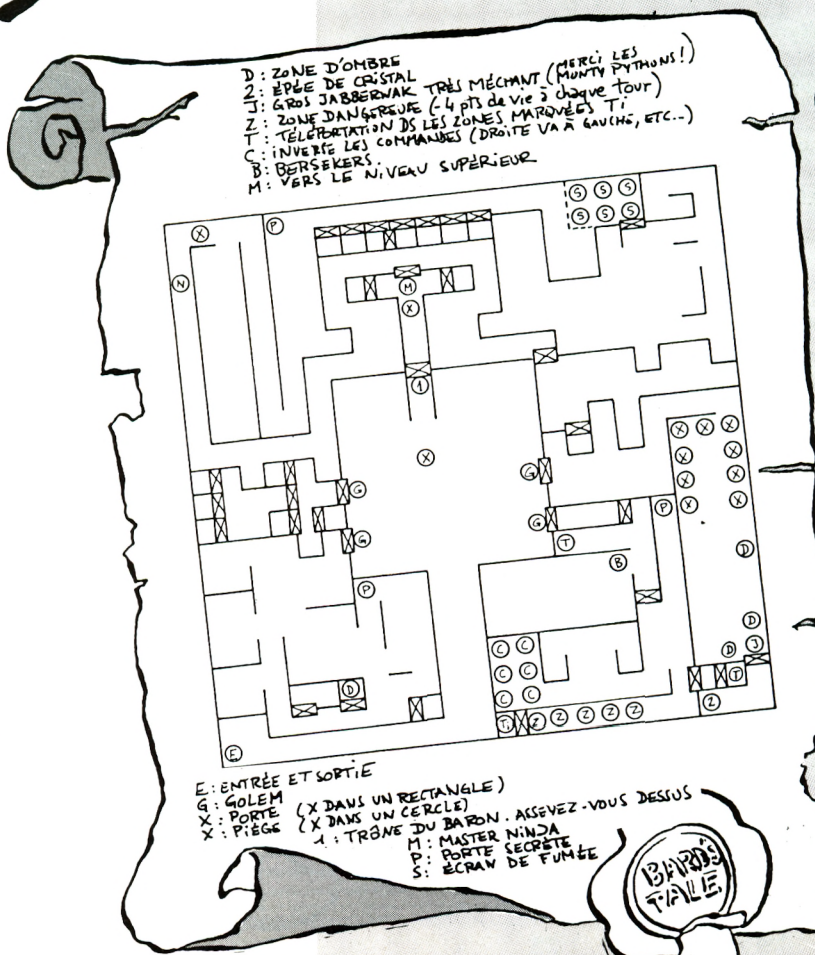 D : ZONE D'OMBRE
2 : ÉPÉE DE CRISTAL
J : GROS JABBERWAK TRÈS MÉCHANT (MERCI LES MUNTY PYTHONS !)
Z : ZONE DANGEREUSE (-4 pts de vie à chaque tour)
T : TÉLÉPORTATION DS LES ZONES MARQUÉES Ti
C : INVERSE LES COMMANDES (DROITE VA À GAUCHE, ETC..)
B : BERSEKERS.
M : VERS LE NIVEAU SUPÉRIEUR
S S S
S S S
X P
N M
X
1
X
G G
G G
P T
B P
X X X
X X
X X
X X
D
D
D J
T
2
C C
C C
C C
Ti Z Z Z Z Z
D
E
E : ENTRÉE ET SORTIE
G : GOLEM
X : PORTE (X DANS UN RECTANGLE)
X : PIÈGE (X DANS UN CERCLE)
1 : TRÔNE DU BARON. ASSEYEZ-VOUS DESSUS
M : MASTER NINJA
P : PORTE SECRÈTE
S : ÉCRAN DE FUMÉE
BARD'S
TALE